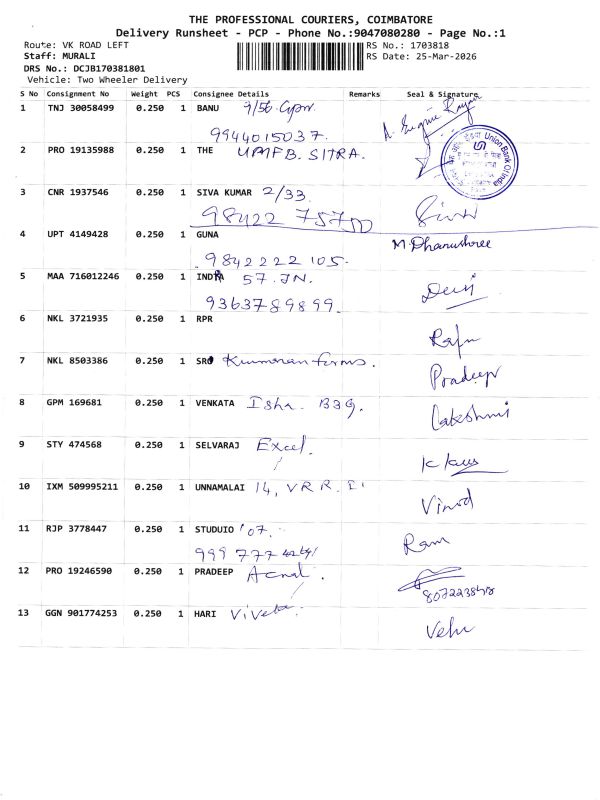 THE PROFESSIONAL COURIERS, COIMBATORE
Delivery Runsheet - PCP - Phone No.:9047080280 - Page No.:1
Route: VK ROAD LEFT
RS No.: 1703818
Staff: MURALI
RS Date: 25-Mar-2026
DRS No.: DCJB170381801
Vehicle: Two Wheeler Delivery
S No Consignment No Weight PCS Consignee Details Remarks Seal & Signature
1 TNJ 30058499 0.250 1 BANU 9/56
9944015037.
2 PRO 19135988 0.250 1 THE SITRA.
Union Bank Of India
3 CNR 1937546 0.250 1 SIVA KUMAR 2/33
98422 75750
4 UPT 4149428 0.250 1 GUNA M Dhanushree
9842222105.
5 MAA 716012246 0.250 1 INDRA 57. JN. Devi
9363789899.
6 NKL 3721935 0.250 1 RPR Raju
7 NKL 8503386 0.250 1 SRI Kumaran farms. Pradeep
8 GPM 169681 0.250 1 VENKATA Isha. Lakshmi
9 STY 474568 0.250 1 SELVARAJ Excel.
10 IXM 509995211 0.250 1 UNNAMALAI 14, V R R. Vinod
11 RJP 3778447 0.250 1 STUDUIO '07. Ram
999 777
12 PRO 19246590 0.250 1 PRADEEP
13 GGN 901774253 0.250 1 HARI Velu